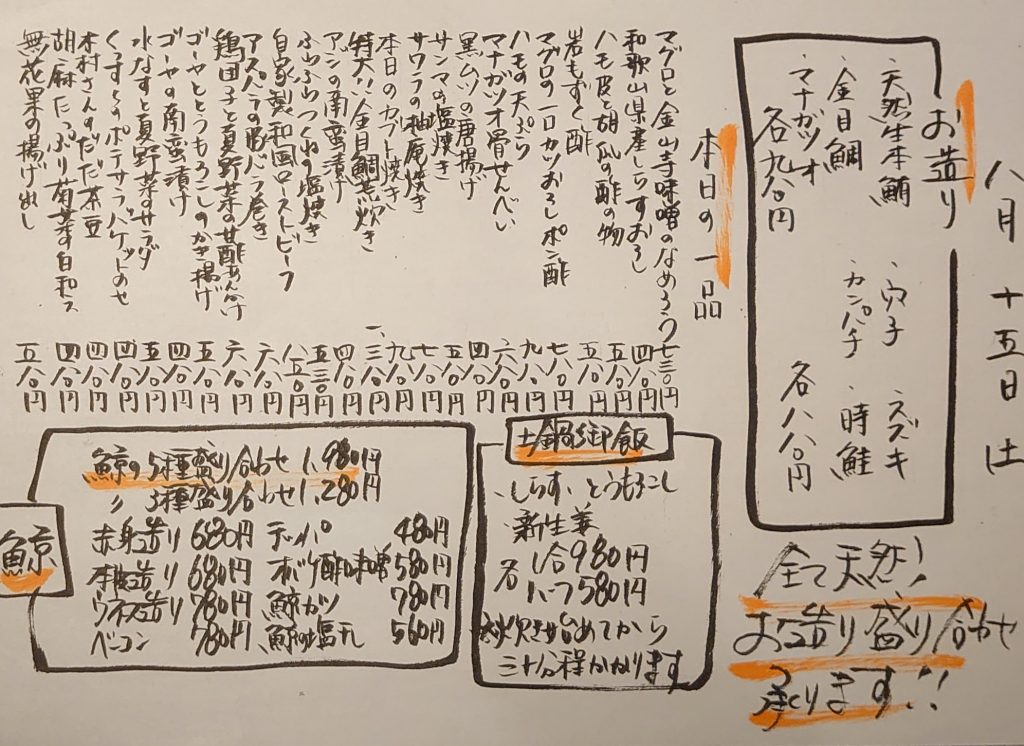 八月十五日 土
お造り
・天然生本鮪
・金目鯛
・マナガツオ
各九八〇円
・穴子
・カンパチ
・スズキ
・時鮭
各八八〇円
全て天然!
お造り盛り合わせ
承ります!!
本日の一品
マグロと金山寺味噌のなめろう 七三〇円
和歌山県産しらすおろし 四八〇円
ハモ皮と胡瓜の酢の物 五八〇円
岩もずく酢 五八〇円
マグロの一口カツおろしポン酢 七八〇円
ハモの天ぷら 九八〇円
マナガツオ骨せんべい 六八〇円
黒ムツの唐揚げ 四八〇円
サンマの塩焼き 五八〇円
サワラの柚庵焼き 七八〇円
本日のカブト焼き 九八〇円
特大!!金目鯛荒炊き 一、三八〇円
アジの南蛮漬け 四八〇円
ふわふわつくねの塩焼き 五三〇円
自家製和風ローストビーフ 八五〇円
アスパラの豚バラ巻き 六八〇円
鶏団子と夏野菜の甘酢あんかけ 六八〇円
ゴーヤととうもろこしのかき揚げ 五八〇円
ゴーヤの南蛮漬け 四八〇円
水なすと夏野菜のサラダ 五八〇円
くんすとのポテサラバケットのせ 四八〇円
木村さんのだだ茶豆 四八〇円
胡麻たっぷり菊菜の白和え 四八〇円
無花果の揚げ出し 五八〇円
土鍋御飯
・しらす・とうもろこし
・新生姜
各 1合980円
ハーフ580円
※炊き始めてから
三十分程かかります
鯨
鯨の5種盛り合わせ 1,980円
〃 3種盛り合わせ 1,280円
赤身造り 680円 テッパ 480円
本皮造り 680円 オバケ酢味噌 580円
ウネス造り 780円 鯨カツ 780円
ベーコン 780円 鯨の塩干し 560円